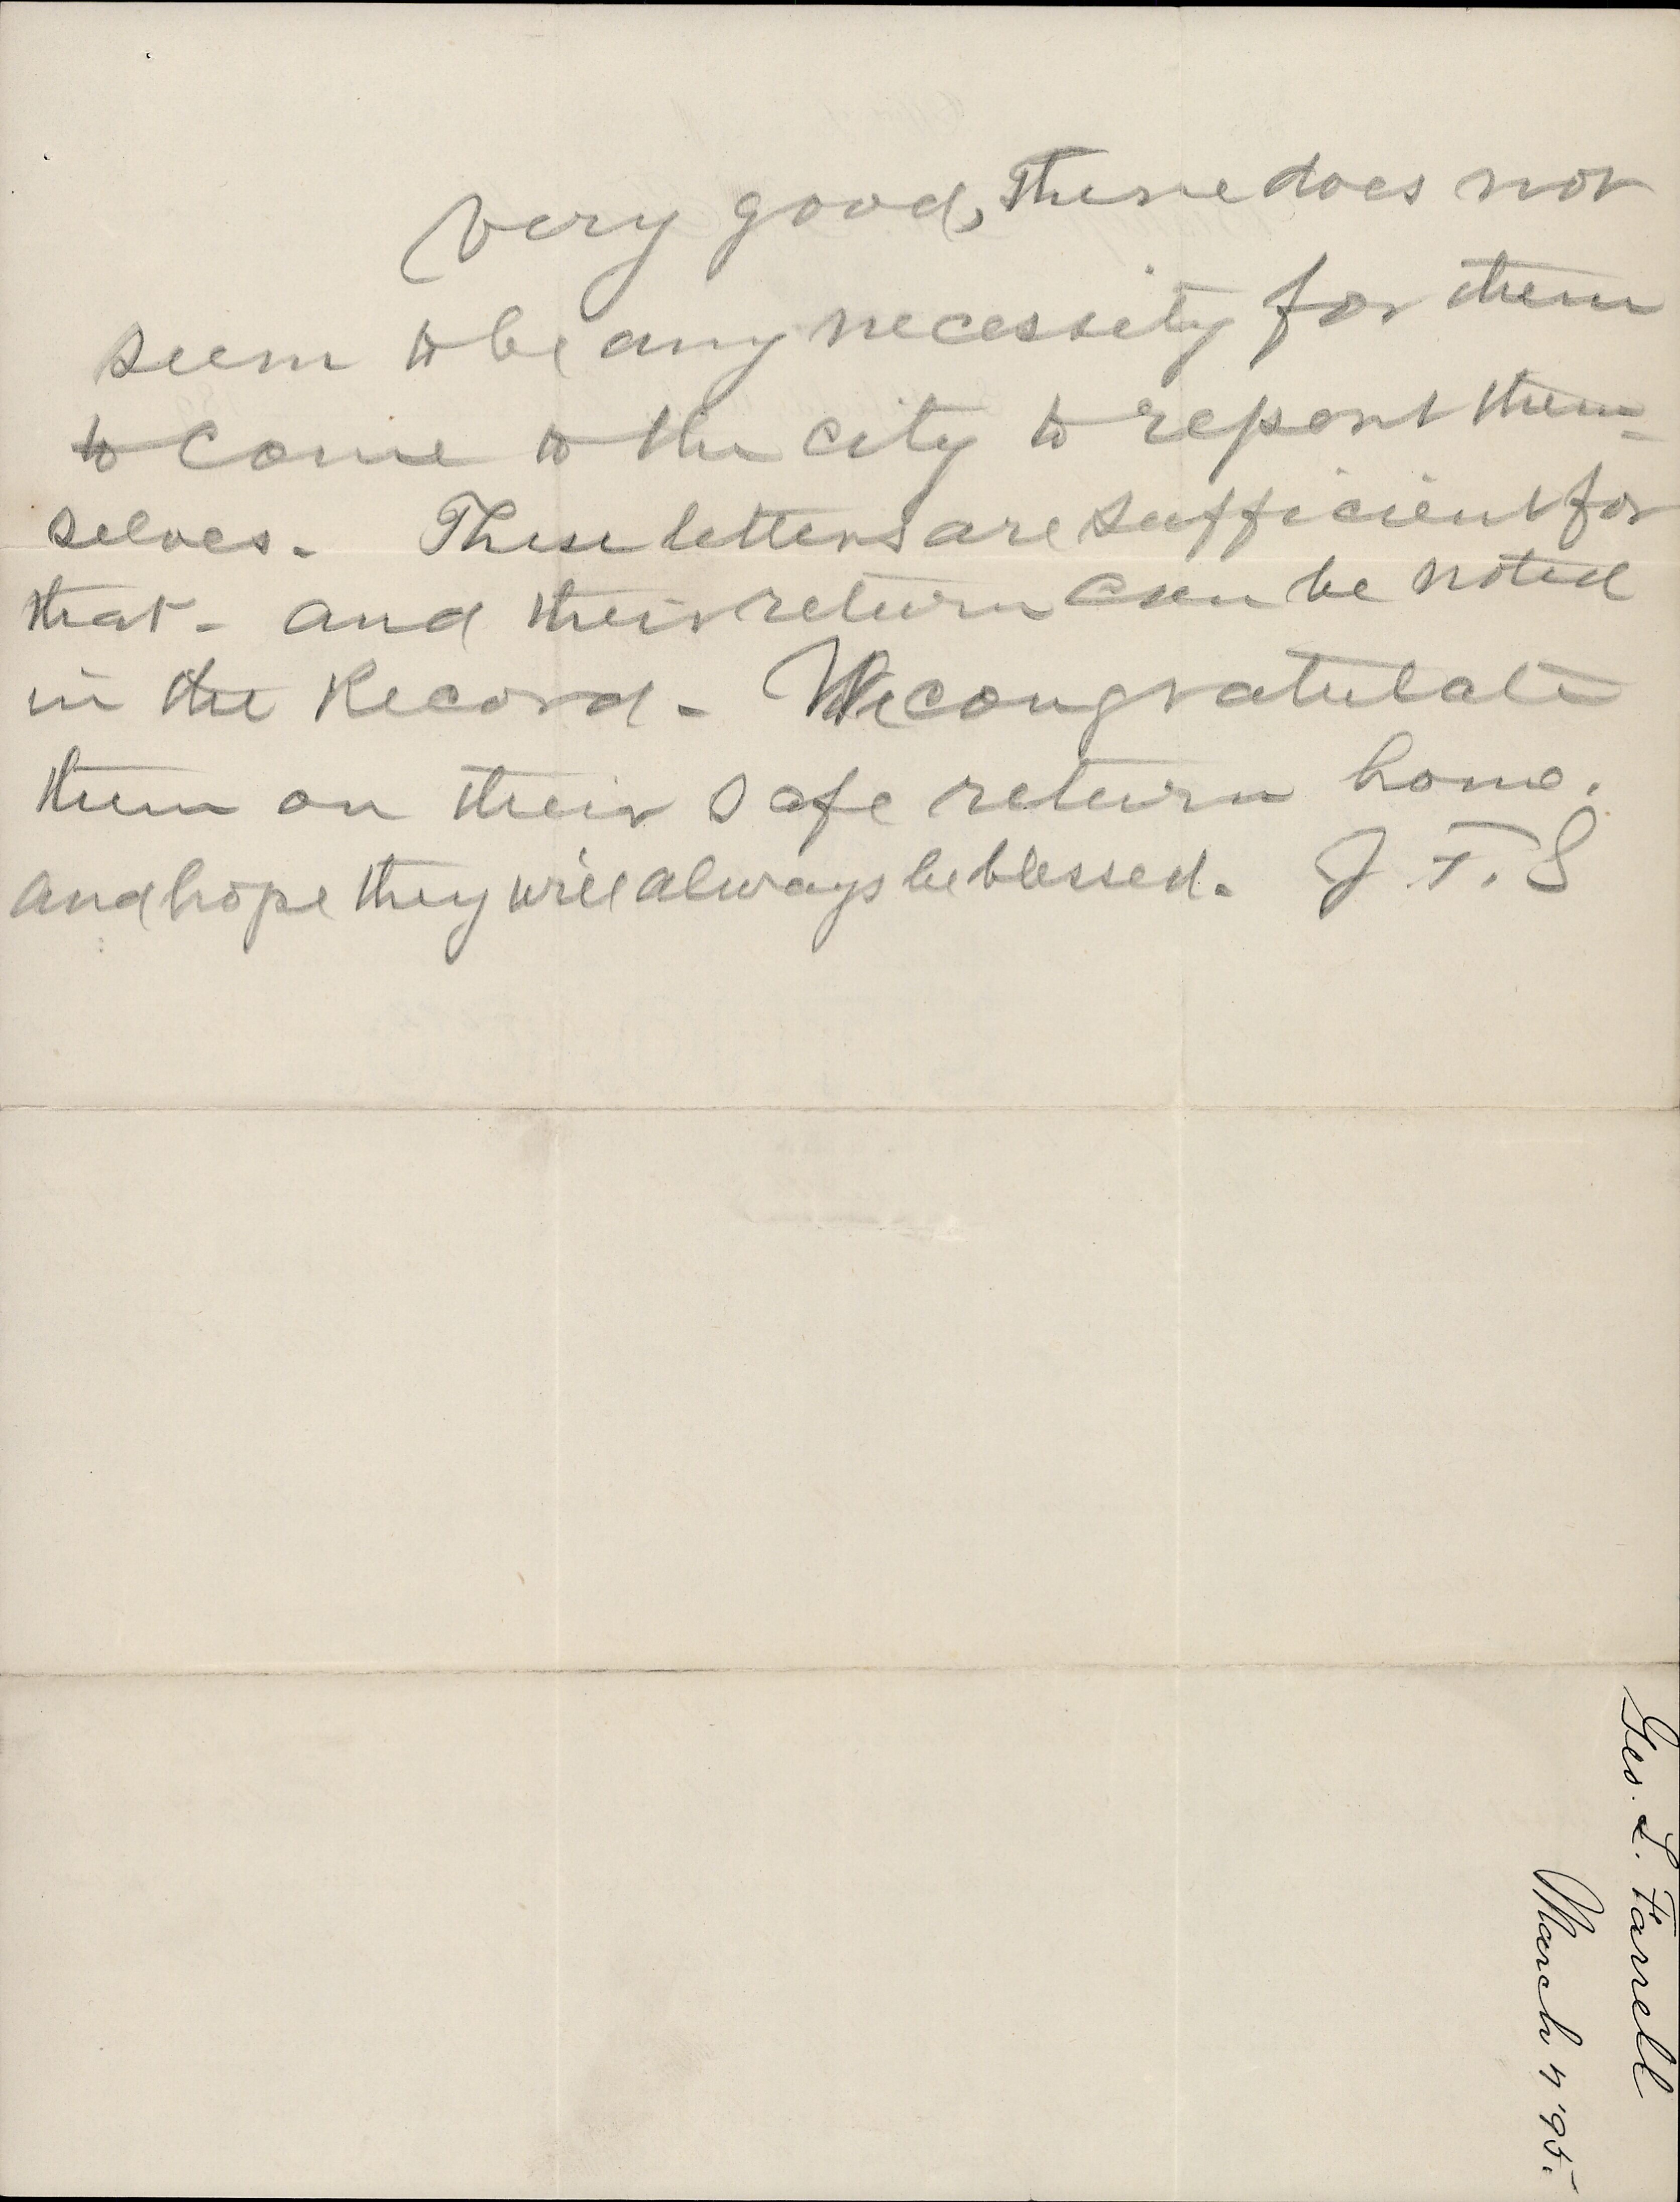 Very good, There does not
seem to be any necessity for them
to come to the city to report them=
selves. These letters are sufficient for
that - and their return can be noted
in the Record. We congratulate
them on their safe return home.
and hope they will always be blessed. J. F. S
Geo. L. Farrell
March 7 '95.